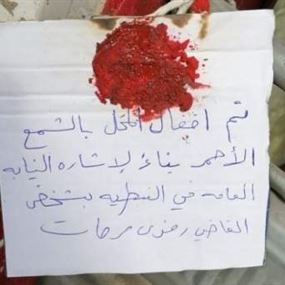 تم اقفال المحل بالشمع
الأحمر بناءً لإشارة النيابه
العامه في النبطيه بشخص
القاضي رمزي فرحات